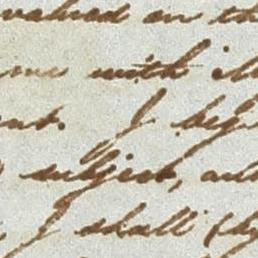 valued on th
me with
ent. I beg
subject, and
I shall (by